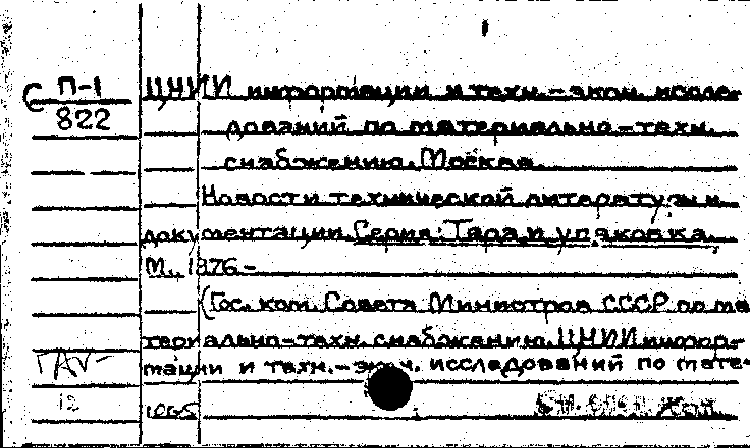 С П-1
822
ЦНИИ информации и техн.-экон. иссле-
дований по материально-техн.
снабжению. Москва.
Новости технической литературы и
документации. Серия: Тара и упаковка.
М., 1976-
(Гос. ком. Совета Министров СССР по ма-
териально-техн. снабжению. ЦНИИ инфор-
мации и техн.-экон. исследований по мате-
12